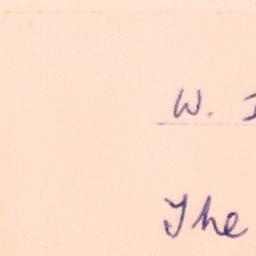 W.
The